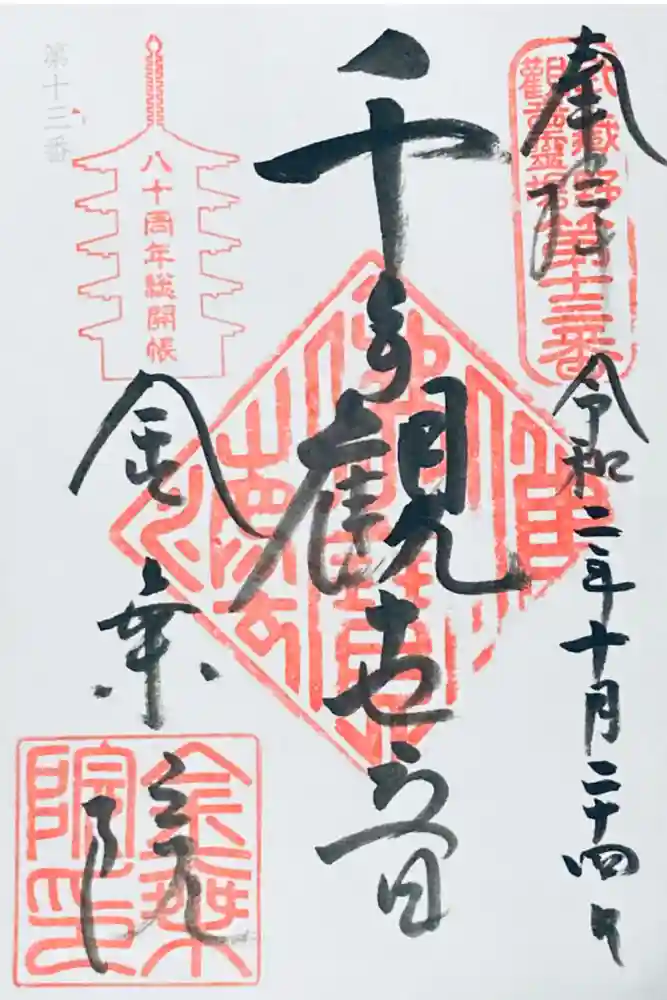 奉拝
武蔵野
観音霊場
第十三番
令和二年十月二十四日
千手観世音
八十周年総開帳
第十三番
金乗院
金乗
院印